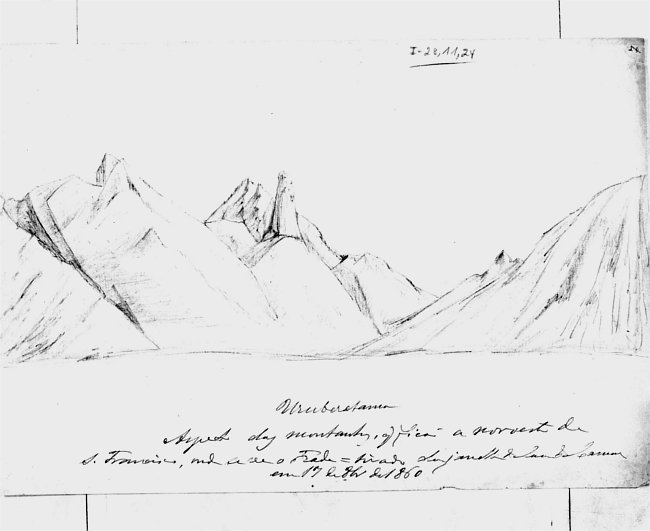 I-28,11,24
Uruburetama
Aspecto das montanhas, q̃ ficaõ a noroeste de
S. Francisco, onde se ve o Frade = tirado da janella da Casa da Camara
em 17 de 8bro de 1860